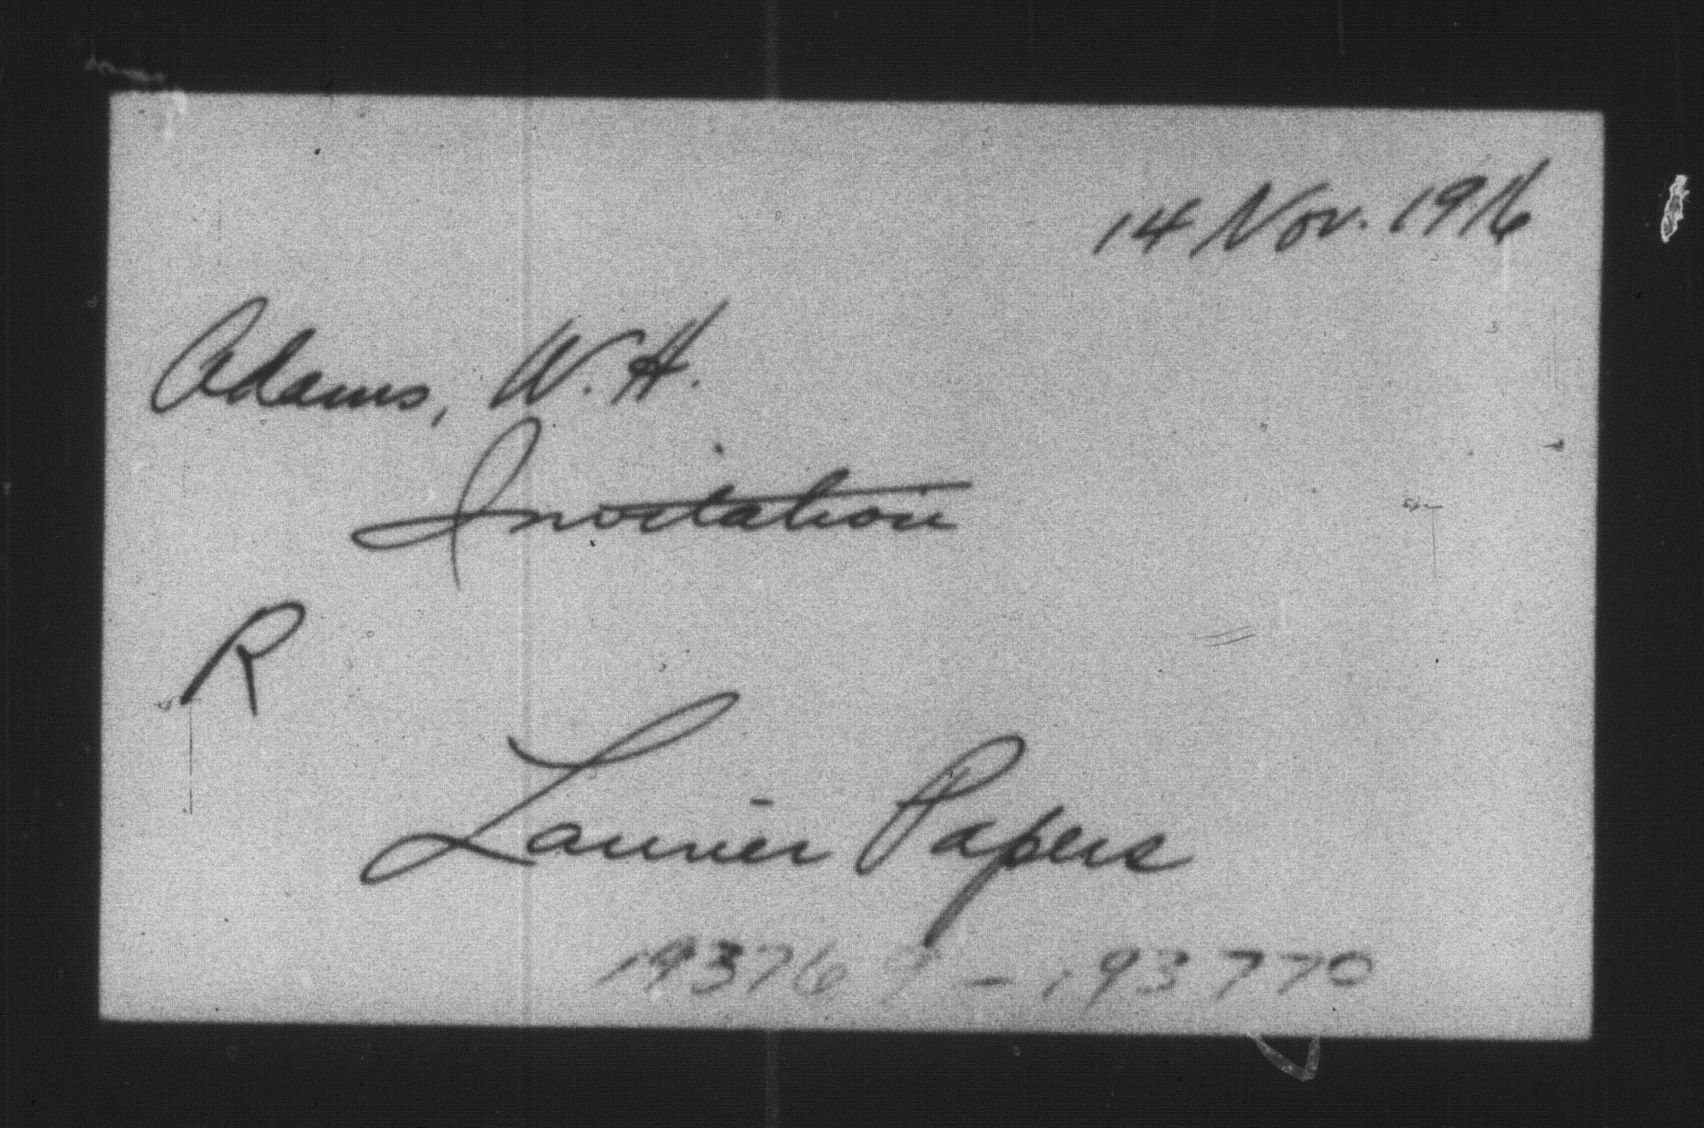 14 Nov. 1916
Adams, W. H.
Invitation
R
Laurier Papers
193769 - 193770